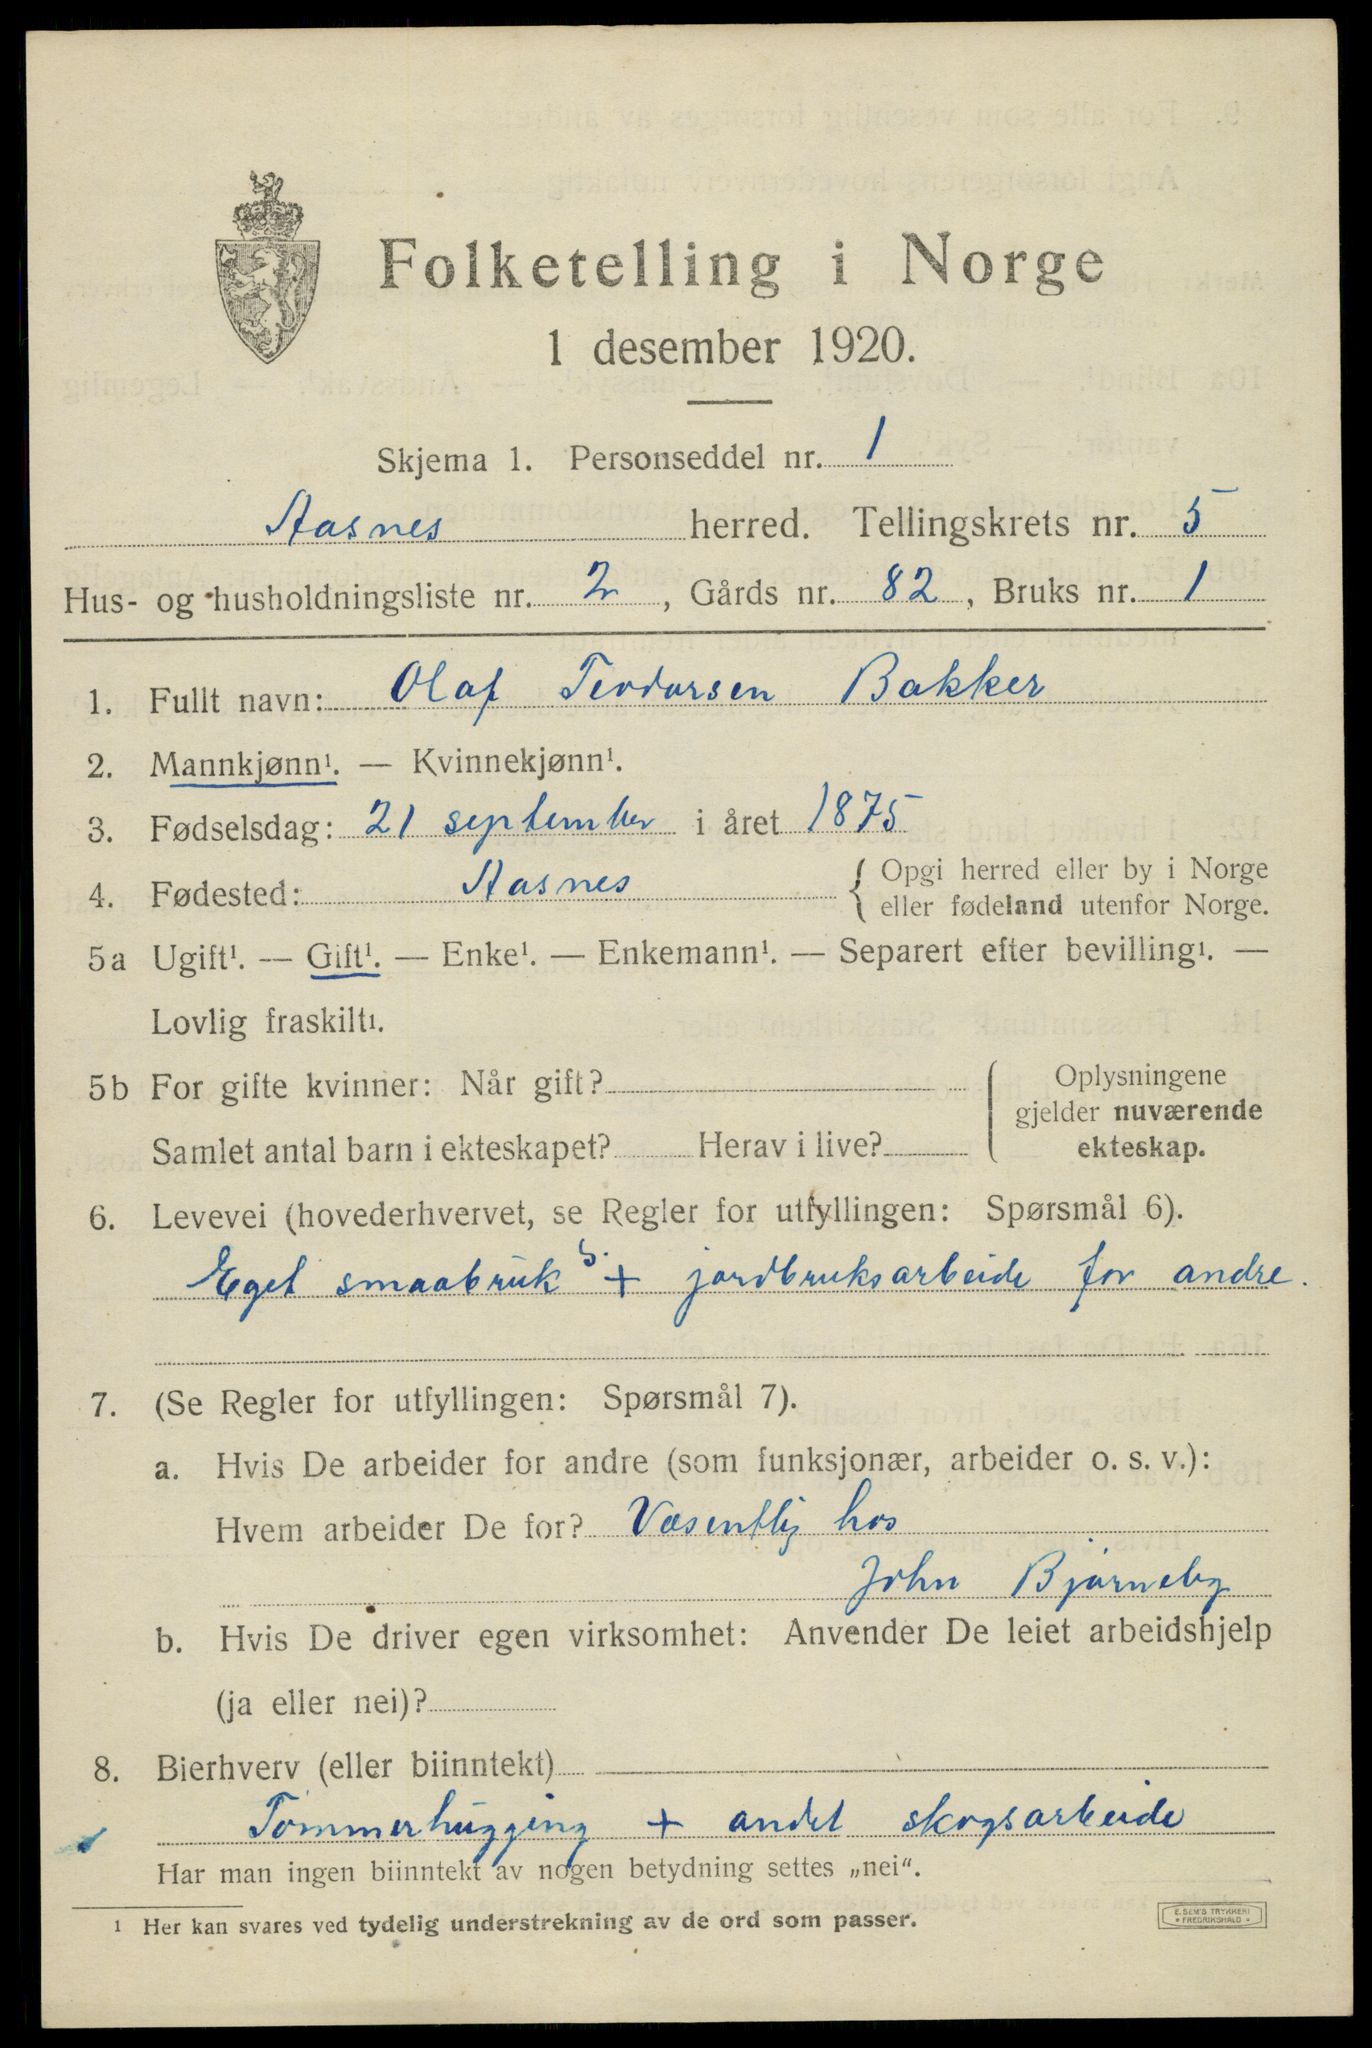 Folketelling i Norge
1 desember 1920.
Skjema 1. Personseddel nr. 1
Aasnes herred. Tellingskrets nr. 5
Hus- og husholdningsliste nr. 2, Gårds nr. 82, Bruks nr. 1
1. Fullt navn: Olaf Teodorsen Bakker
2. Mannkjønn¹. — Kvinnekjønn¹.
3. Fødselsdag: 21 september i året 1875
4. Fødested: Aasnes { Opgi herred eller by i Norge
eller fødeland utenfor Norge.
5a Ugift¹. — Gift¹. — Enke¹. — Enkemann¹. — Separert efter bevilling¹. —
Lovlig fraskilt¹.
5b For gifte kvinner: Når gift?
Samlet antal barn i ekteskapet? Herav i live?
Oplysningene
gjelder nuværende
ekteskap.
6. Levevei (hovederhvervet, se Regler for utfyllingen: Spørsmål 6).
Eget smaabruk s. + jordbruksarbeide for andre.
7. (Se Regler for utfyllingen: Spørsmål 7).
a. Hvis De arbeider for andre (som funksjonær, arbeider o. s. v.):
Hvem arbeider De for? Væsentlig hos
John Bjørneby
b. Hvis De driver egen virksomhet: Anvender De leiet arbeidshjelp
(ja eller nei)?
8. Bierhverv (eller biinntekt)
Tømmerhugging + andet skogsarbeide
Har man ingen biinntekt av nogen betydning settes „nei“.
¹ Her kan svares ved tydelig understrekning av de ord som passer.
E. SEM'S TRYKKERI
• FREDRIKSHALD •